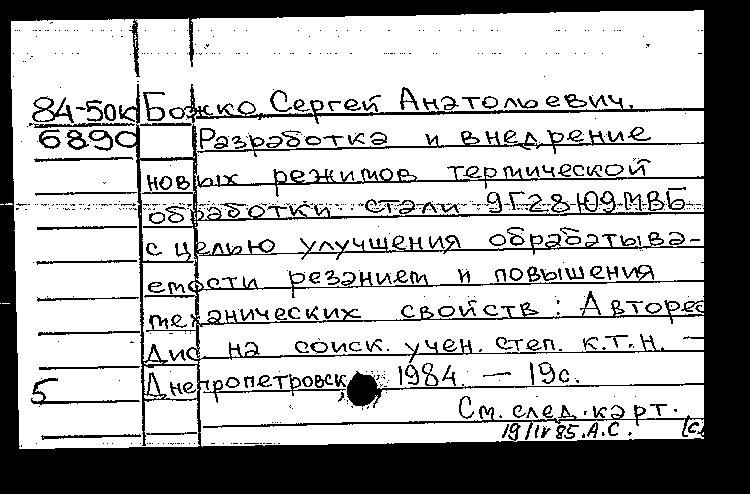 84-50к Божко, Сергей Анатольевич.
6890 Разработка и внедрение
новых режимов термической
обработки стали 9Г28Ю9МВБ
с целью улучшения обрабатыва-
емости резанием и повышения
механических свойств : Авторе
Дис на соиск. учен. степ. к.т.н. —
5 Днепропетровск, 1984 — 19с.
См. след. карт.
19/IV 85. А.С.